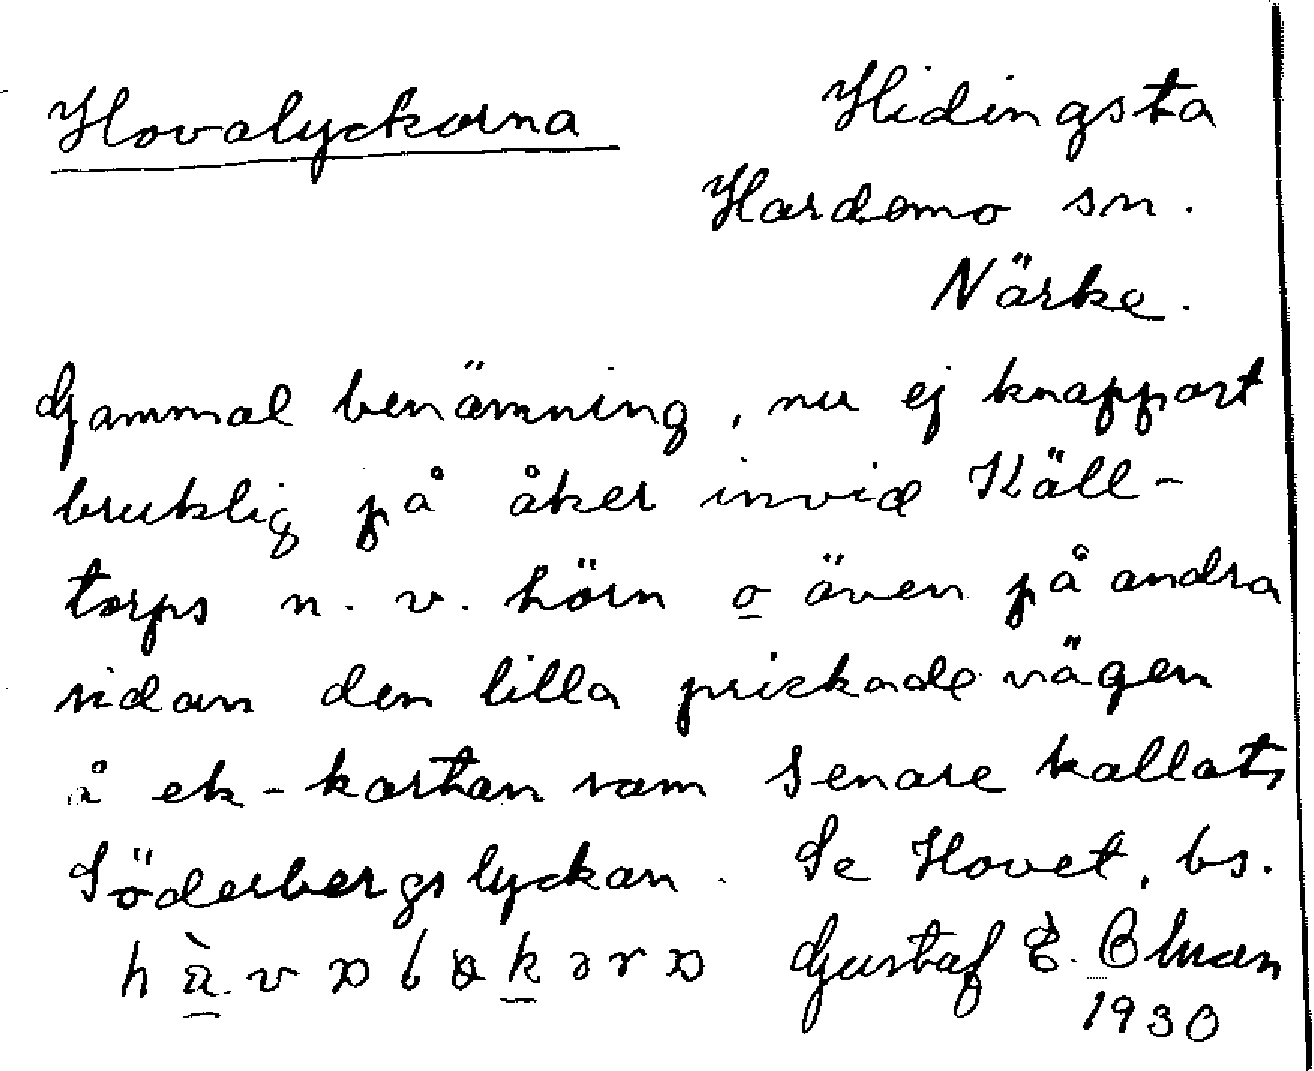 Hovalyckorna
Hidingsta
Hardemo sn.
Närke.
Gammal benämning, nu ej knappast
bruklig på åker invid Käll-
torps n. v. hörn o även på andra
sidan den lilla prickade vägen
å ek-kartan som senare kallats
Söderbergslyckan. Se Hovet, bs.
Gustaf E.
1930